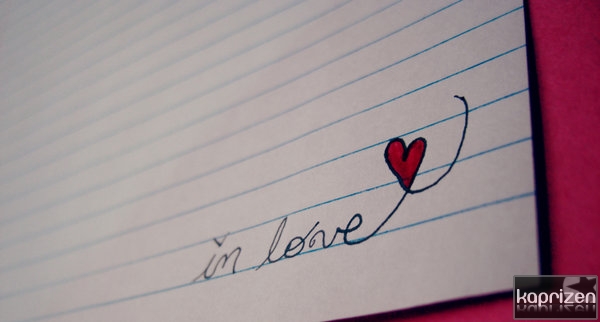 in love
kaprizen